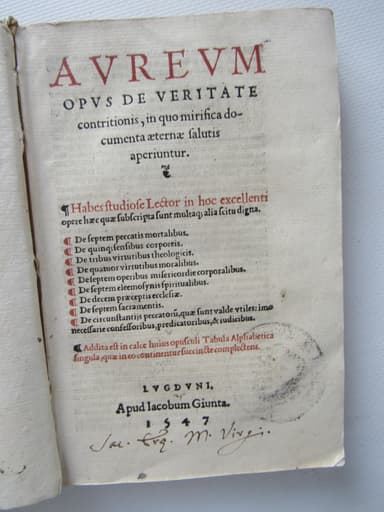 AVREVM
OPVS DE VERITATE
contritionis, in quo mirifica do-
cumenta æternæ salutis
aperiuntur.
¶ Habes studiose Lector in hoc excellenti
opere hæc quæ subscripta sunt multaq; alia scitu digna.
¶ De septem peccatis mortalibus.
¶ De quinq; sensibus corporeis.
¶ De tribus virtutibus theologicis.
¶ De quatuor virtutibus moralibus.
¶ De septem operibus misericordie corporalibus.
¶ De septem eleemosynis spiritualibus.
¶ De decem præceptis ecclesiæ.
¶ De septem sacramentis.
¶ De circunstantiis peccatorũ, quæ sunt valde vtiles: imo
necessarie confessoribus, predicatoribus, & iudicibus.
¶ Addita est in calce huius opusculi Tabula Alphabetica
singula, quæ in eo continentur succincte complectens.
LVGDVNI,
Apud Iacobum Giunta.
1547
M. Virgi.